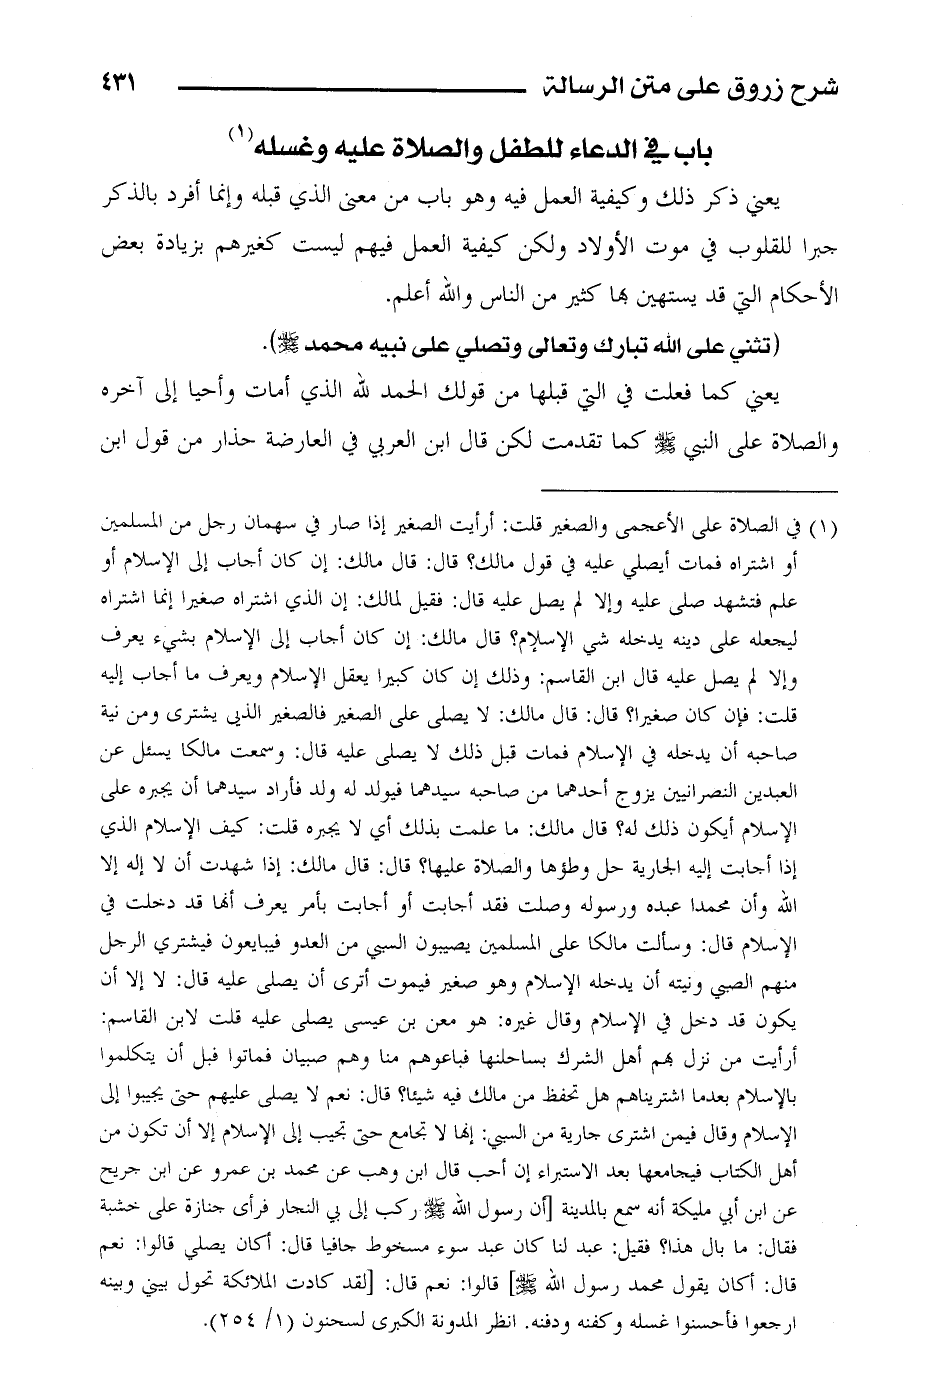 شرح زروق على متن الرسالة ٤٣١
باب في الدعاء للطفل والصلاة عليه وغسله(١)
يعني ذكر ذلك وكيفية العمل فيه وهو باب من معنى الذي قبله وإنما أفرد بالذكر
جبرا للقلوب في موت الأولاد ولكن كيفية العمل فيهم ليست كغيرهم بزيادة بعض
الأحكام التي قد يستهين بها كثير من الناس والله أعلم.
(تثني على الله تبارك وتعالى وتصلي على نبيه محمد ﷺ).
يعني كما فعلت في التي قبلها من قولك الحمد لله الذي أمات وأحيا إلى آخره
والصلاة على النبي ﷺ كما تقدمت لكن قال ابن العربي في العارضة حذار من قول ابن
(١) في الصلاة على الأعجمى والصغير قلت: أرأيت الصغير إذا صار في سهمان رجل من المسلمين
أو اشتراه فمات أيصلي عليه في قول مالك؟ قال: قال مالك: إن كان أجاب إلى الإسلام أو
علم فتشهد صلى عليه وإلا لم يصل عليه قال: فقيل لمالك: إن الذي اشتراه صغيرا إنما اشتراه
ليجعله على دينه يدخله شي الإسلام؟ قال مالك: إن كان أجاب إلى الإسلام بشيء يعرف
وإلا لم يصل عليه قال ابن القاسم: وذلك إن كان كبيرا يعقل الإسلام ويعرف ما أجاب إليه
قلت: فإن كان صغيرا؟ قال: قال مالك: لا يصلى على الصغير فالصغير الذي يشترى ومن نية
صاحبه أن يدخله في الإسلام فمات قبل ذلك لا يصلى عليه قال: وسمعت مالكا يسئل عن
العبدين النصرانيين يزوج أحدهما من صاحبه سيدهما فيولد له ولد فأراد سيدهما أن يجبره على
الإسلام أيكون ذلك له؟ قال مالك: ما علمت بذلك أي لا يجبره قلت: كيف الإسلام الذي
إذا أجابت إليه الجارية حل وطؤها والصلاة عليها؟ قال: قال مالك: إذا شهدت أن لا إله إلا
الله وأن محمدا عبده ورسوله وصلت فقد أجابت أو أجابت بأمر يعرف أنها قد دخلت في
الإسلام قال: وسألت مالكا على المسلمين يصيبون السبي من العدو فيبايعون فيشتري الرجل
منهم الصبي ونيته أن يدخله الإسلام وهو صغير فيموت أترى أن يصلى عليه قال: لا إلا أن
يكون قد دخل في الإسلام وقال غيره: هو معن بن عيسى يصلى عليه قلت لابن القاسم:
أرأيت من نزل بهم أهل الشرك بساحلنها فباعوهم منا وهم صبيان فماتوا قبل أن يتكلموا
بالإسلام بعدما اشتريناهم هل تحفظ من مالك فيه شيئا؟ قال: نعم لا يصلى عليهم حتى يجيبوا إلى
الإسلام وقال فيمن اشترى جارية من السبي: إنها لا تجامع حتى تجيب إلى الإسلام إلا أن تكون من
أهل الكتاب فيجامعها بعد الاستبراء إن أحب قال ابن وهب عن محمد بن عمرو عن ابن جريح
عن ابن أبي مليكة أنه سمع بالمدينة [أن رسول الله ﷺ ركب إلى بي النجار فرأى جنازة على خشبة
فقال: ما بال هذا؟ فقيل: عبد لنا كان عبد سوء مسخوط جافيا قال: أكان يصلي قالوا: نعم
قال: أكان يقول محمد رسول الله ﷺ] قالوا: نعم قال: [لقد كادت الملائكة تحول بيني وبينه
ارجعوا فأحسنوا غسله وكفنه ودفنه. انظر المدونة الكبرى لسحنون (١/ ٢٥٤).